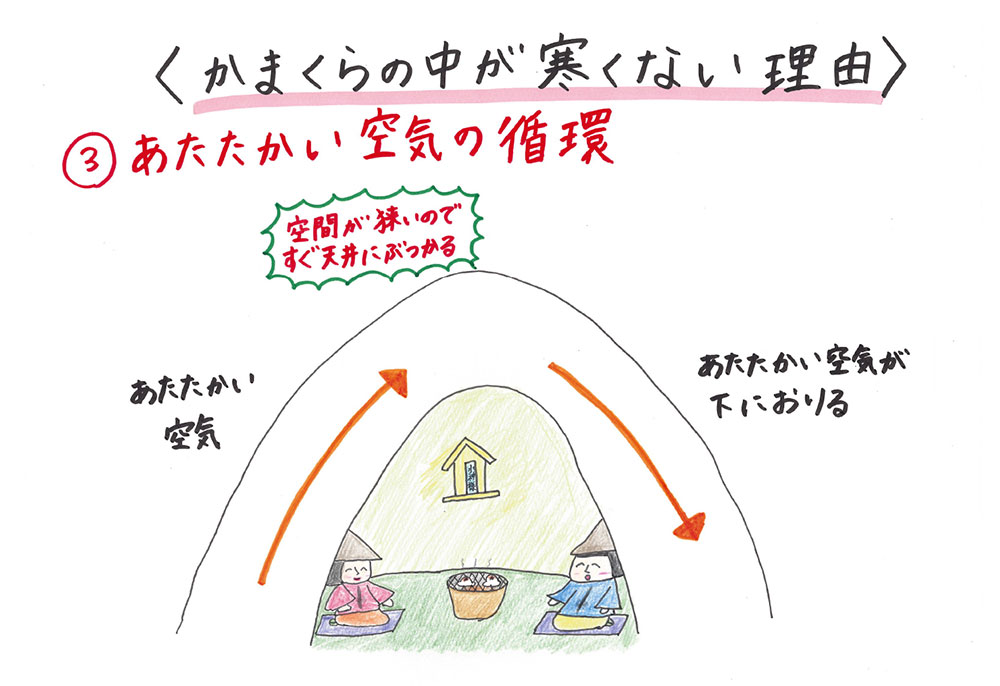 〈かまくらの中が寒くない理由〉
③あたたかい空気の循環
空間が狭いので
すぐ天井にぶつかる
あたたかい
空気
あたたかい空気が
下におりる
水神様